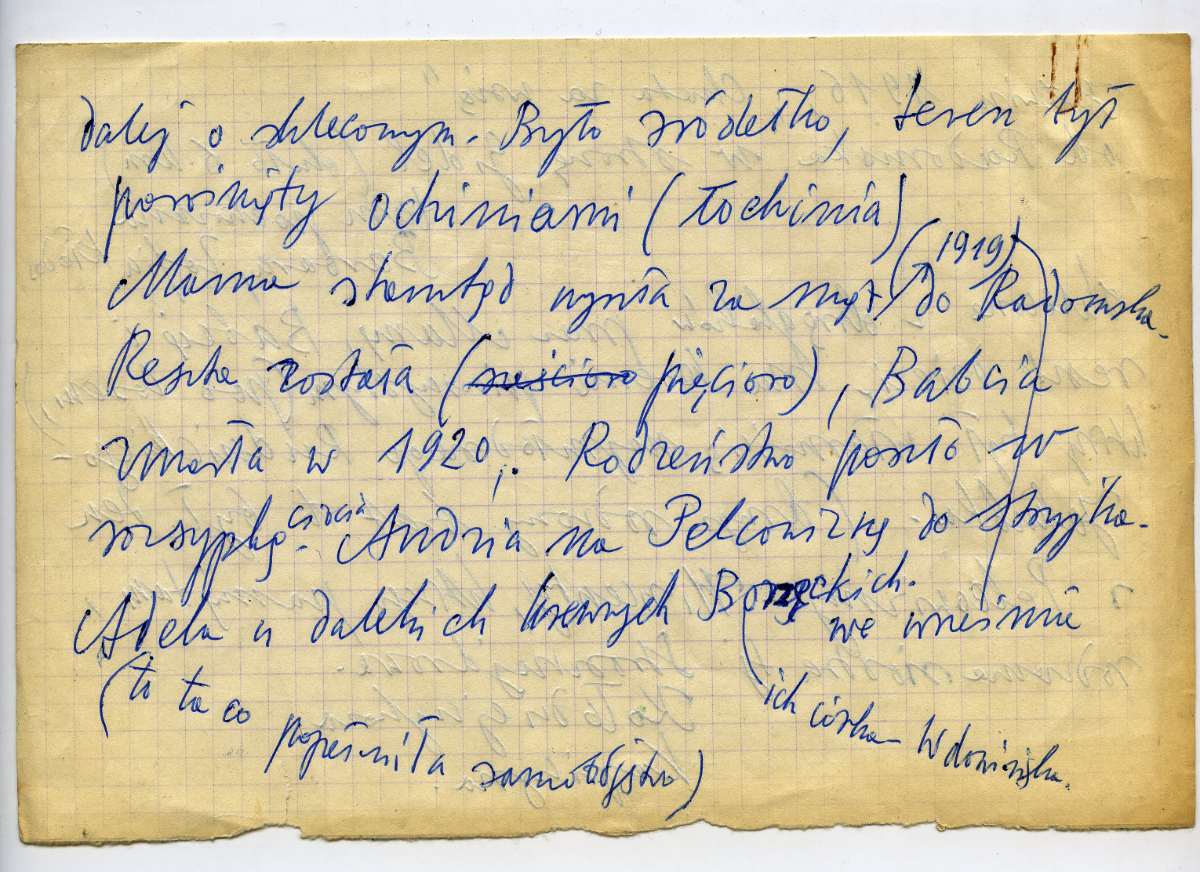 dalej o zhleconym. Było źródełko, teren był
porośnięty ochiniami (łochinia)
Mama stamtąd wyszła za mąż (1919) do Radomska.
Reszta została (sześcioro pięcioro), Babcia
zmarła w 1920. Rodzeństwo poszło w
rozsypkę. ciocia Andzia na Pelcowiznę do Stryjka.
Adela u dalekich krewnych Borzęckich.
we wrześniu
(to ta co
popełniła samobójstwo)
ich córka Wdowińska.